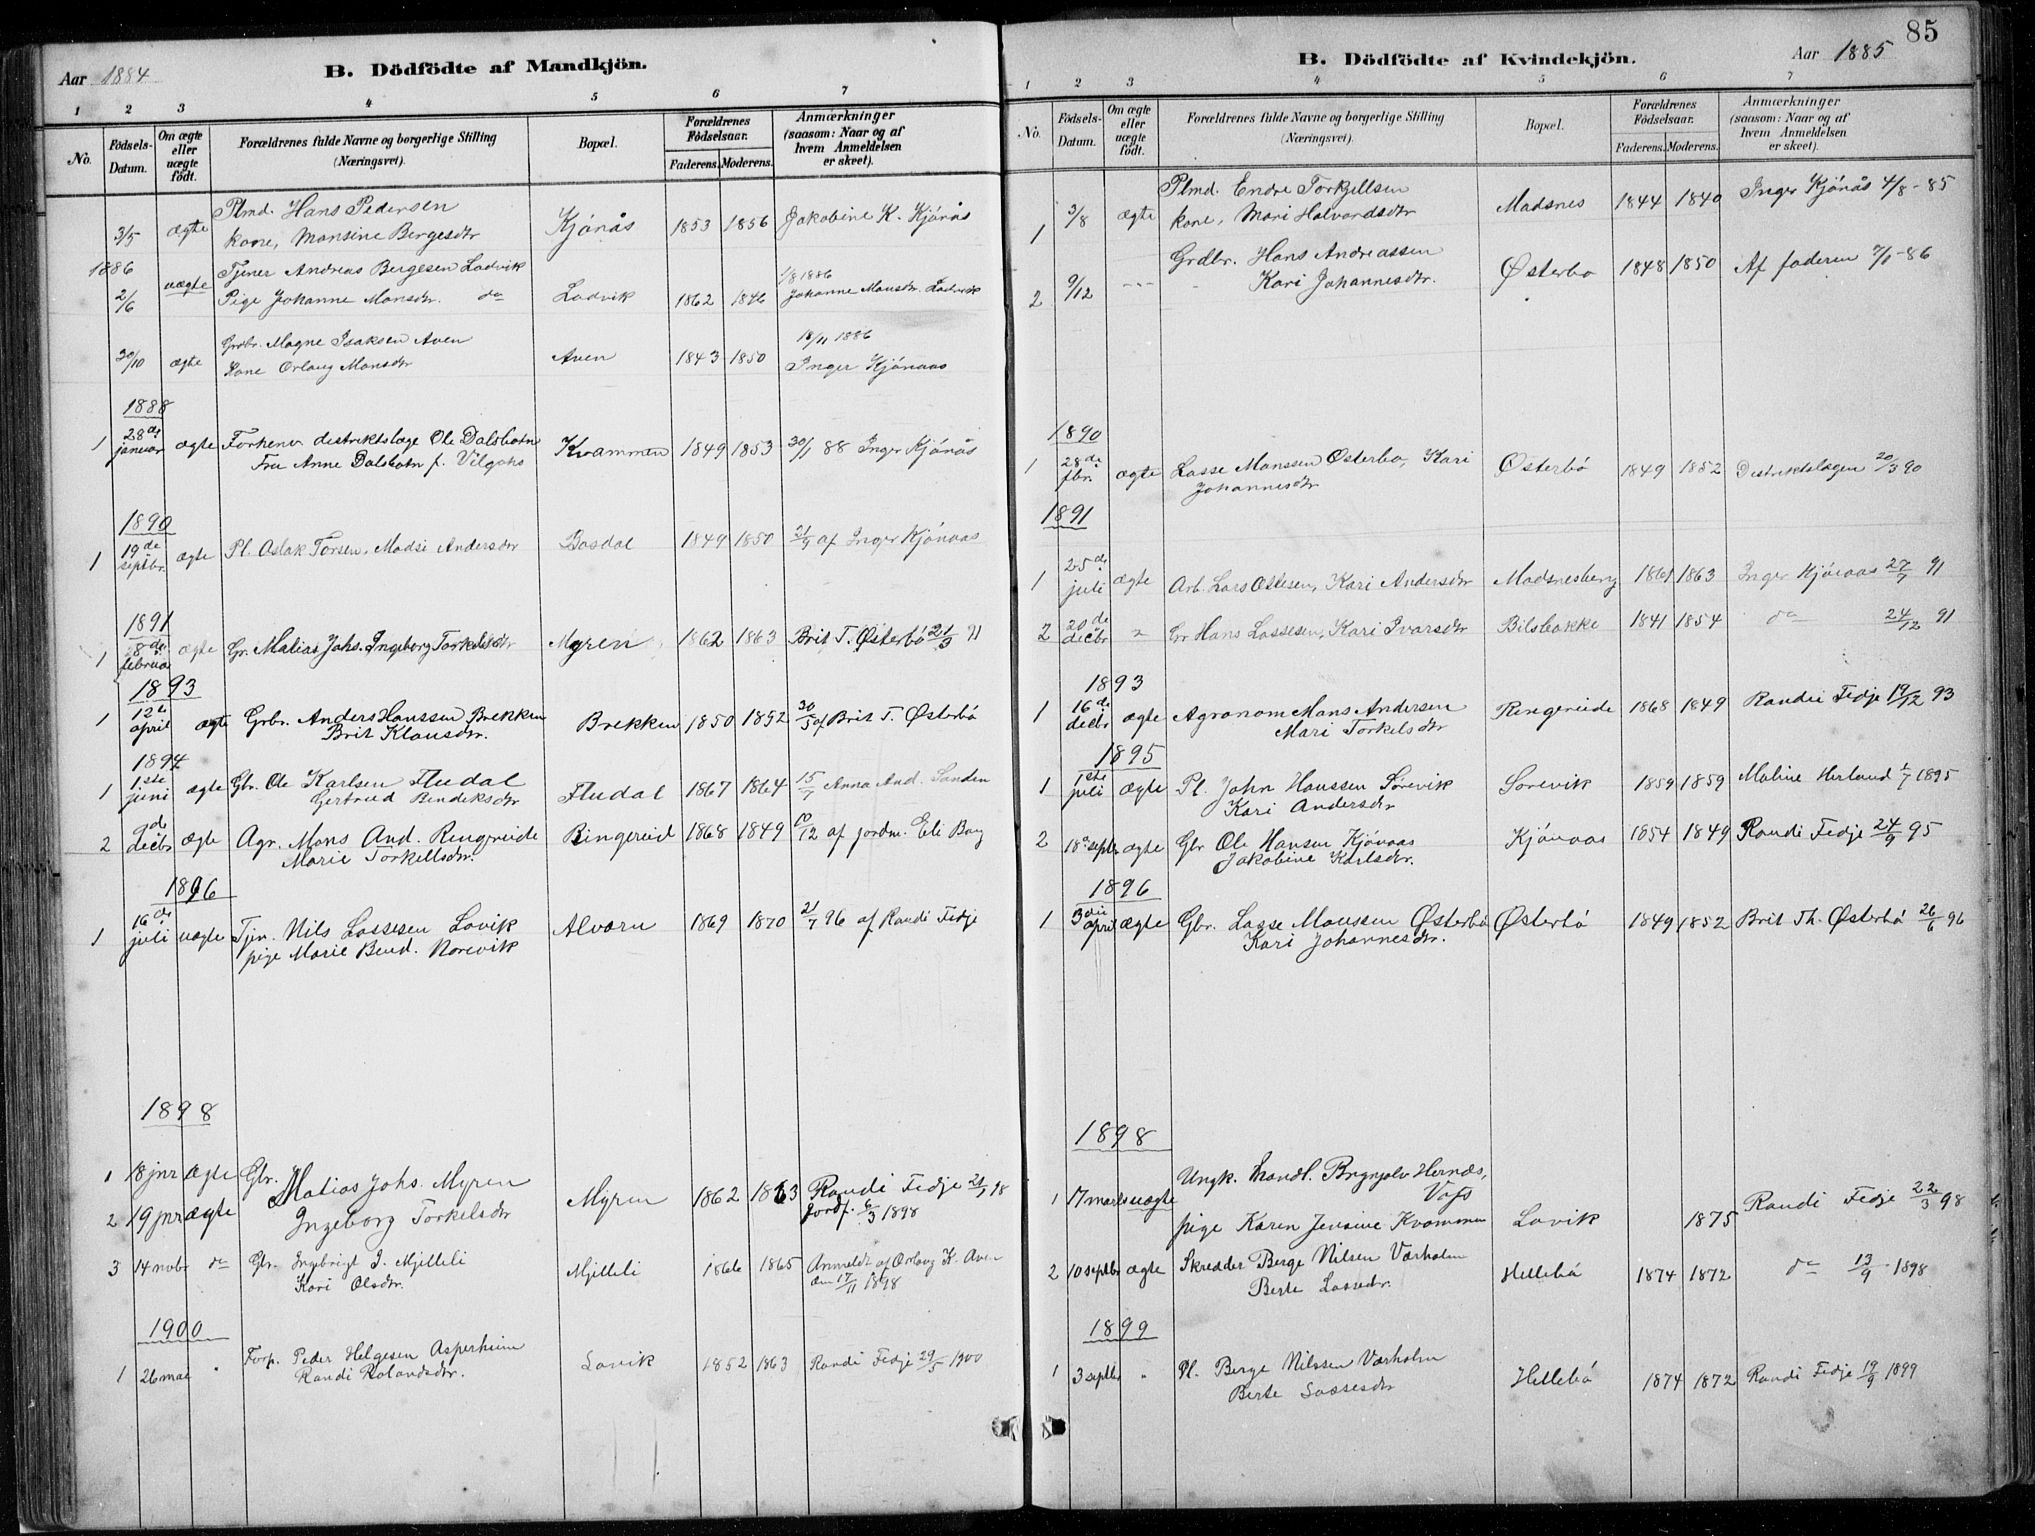 Aar 1884
B. Dödfödte af Mandkjön.
1 2 3 4 5 6 7
No.
Födsels-Datum.
Om ægte eller uægte födt.
Forældrenes fulde Navne og borgerlige Stilling
(Næringsvei).
Bopæl.
Forældrenes Födselsaar.
Faderens. Moderens.
Anmærkninger
(saasom: Naar og af
hvem Anmeldelsen
er skeet).
3/5 ægte Plmd. Hans Pedersen Kjönås 1853 1856 Jakobine K. Kjönås
kone, Monsine Bergesdtr
1886
2/6 uægte Tjener Andreas Bergesen Ladvik 1/8 1886
Pige Johanne Monsdtr. do Ladvik 1862 1846 Johanne Monsdtr. Ladvik
30/10 ægte Grdbr. Magne Isaksen Aven Aven 1843 1850 18/11 1886
Kone Orlaug Monsdtr Inger Kjönaas
1888
1 28de januar ægte Forhenv. distriktslæge Ole Dalsbotn Kvammen 1849 1853 30/1 88 Inger Kjönås
Fru Anne Dalsbotn f.
1890
1 19de septbr. ægte Pl. Aslak Torsen, Madsi Andersdtr Bosdal 1849 1850 21/9 af Inger Kjönaas
1891
1 8de februar ægte Gr. Matias Johs. Ingeborg Torkelsdtr Myren 1862 1863 Brit T. Østerbö 21/3 91
1893
1 12te april ægte Grbr. Anders Hanssen Brekken Brekken 1850 1852 30/5 af Brit T. Østerbö
Brit Klausdtr.
1894
1 1ste juni ægte Gbr. Ole Karlsen Fludal Fludal 1867 1864 15/7 Anna And. Sanden
Gertrud Bendeksdtr
2 de decbr ægte Agr. Mons And. Ringereide Ringereid 1868 1849 /12 af jordm. Eli
Marie Torkellsdtr.
1896
1 16de juli uægte Tjn. Nils Lassesen Lavik Alværn 1869 1870 21/7 96 af Randi Fedje
pige Marie Bend. Norevik
1898
1 18 jnr ægte Gbr. Matias Johs. Myren Myren 1862 1863 Randi Fedje 21/1 98
2 19 jnr ægte Ingeborg Torkelsdtr Jordf. 6/3 1898
3 14 novbr do Gbr. Ingebrigt I. Mjelleli Mjelleli 1866 1865 Anmeldt af Orlaug K. Aven
Kari Olsdtr. den 17/11 1898
1900
1 26 mai " Forp. Peder Helgesen Asperheim Lavik 1852 1863 Randi Fedje 29/5 1900
Randi Rolandsdtr.
85
B. Dödfödte af Kvindekjön.
Aar 1885
1 2 3 4 5 6 7
No.
Födsels-Datum.
Om ægte eller uægte födt.
Forældrenes fulde Navne og borgerlige Stilling
(Næringsvei).
Bopæl.
Forældrenes Födselsaar.
Faderens. Moderens.
Anmærkninger
(saasom: Naar og af
hvem Anmeldelsen
er skeet).
1 3/8 ægte Plmd. Endre Torkjellsen Madsnes 1844 1840 Inger Kjönås 4/8-85
kone, Mari Halvardsdtr
2 9/12 --- Grdbr. Hans Andreassen Østerbo 1848 1850 Af faderen 7/1-86
Kari Johannesdtr.
1890
1 28de fbr. ægte Lasse Monssen Østerbo, Kari Østerbö 1849 1852 Distriktslægen 20/3 90
Johannesdtr
1891
1 25de juli ægte Arb. Lars Ottesen, Kari Andersdtr Madsnesberg 1861 1863 Inger Kjönaas 27/7 91
2 20de decbr " Gr Hans Lassesen, Kari Ivarsdtr Bilsbakke 1841 1854 do 24/12 91
1893
1 16de decbr ægte Agronom Mons Andersen Ringereide 1868 1849 Randi Fedje 19/12 93
Mari Torkelsdtr
1895
1 1ste juli ægte Pl. John Hanssen Sörevik Sorevik 1859 1859 Maline Herland 1/7 1895
Kari Andersdtr
2 18de septbr ægte Gbr Ole Hansen Kjönaas Kjönaas 1854 1849 Randi Fedje 24/9 95
Jakobine Karlsdtr.
1896
1 3die april ægte Gbr. Lasse Monssen Østerbö Østerbö 1849 1852 Brit Th. Østerbö 26/6 96
Kari Johannesdtr.
1898
1 17 mars uægte Ungk. Handl. Brynjolv Hernæs,
Vofs
pige Karen Jensine Kvammen Lavik 1875 Randi Fedje 22/3 98
2 10 septbr ægte Skredder Berge Nilsen Værholm Hellebö 1874 1872 do 13/9 1898
Berte Lassedtr.
1899
1 3 septbr " Pl. Berge Nilssen Værholm Hellebö 1874 1872 Randi Fedje 19/9 1899
Berte Lassesdtr